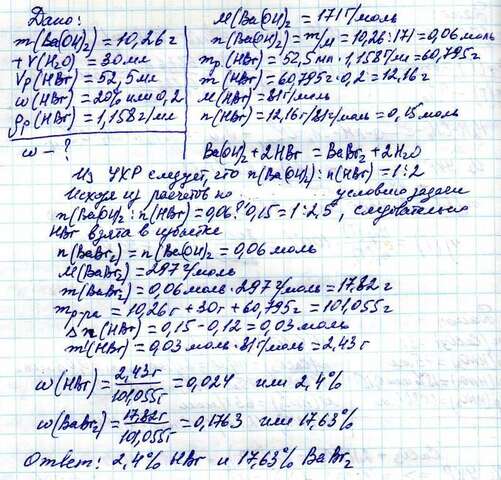 Дано:
m(Ba(OH)₂) = 10,26 г
+ V(H₂O) = 30 мл
Vр(HBr) = 52,5 мл
ω(HBr) = 20% или 0,2
ρр(HBr) = 1,158 г/мл
ω - ?
M(Ba(OH)₂ = 171 г/моль
n(Ba(OH)₂ = m/M = 10,26:171 = 0,06 моль
mр(HBr) = 52,5 мл · 1,158 г/мл = 60,795 г
m(HBr) = 60,795 г · 0,2 = 12,16 г
M(HBr) = 81 г/моль
n(HBr) = 12,16 г/81 г/моль = 0,15 моль
Ba(OH)₂ + 2HBr = BaBr₂ + 2H₂O
Из УХР следует, что n(Ba(OH)₂) : n(HBr) = 1:2
Исходя из расчетов по условию задачи
n(Ba(OH)₂ : n(HBr) = 0,06 : 0,15 = 1:2,5, следовательно
HBr взята в избытке
n(BaBr₂) = n(Ba(OH)₂ = 0,06 моль
M(BaBr₂) = 297 г/моль
m(BaBr₂) = 0,06 моль · 297 г/моль = 17,82 г
mр-ра = 10,26 г + 30 г + 60,795 г = 101,055 г
Δn(HBr) = 0,15 - 0,12 = 0,03 моль
m'(HBr) = 0,03 моль · 81 г/моль = 2,43 г
ω(HBr) = 2,43 г / 101,055 г = 0,024 или 2,4%
ω(BaBr₂) = 17,82 г / 101,055 г = 0,1763 или 17,63%
Ответ: 2,4% HBr и 17,63% BaBr₂